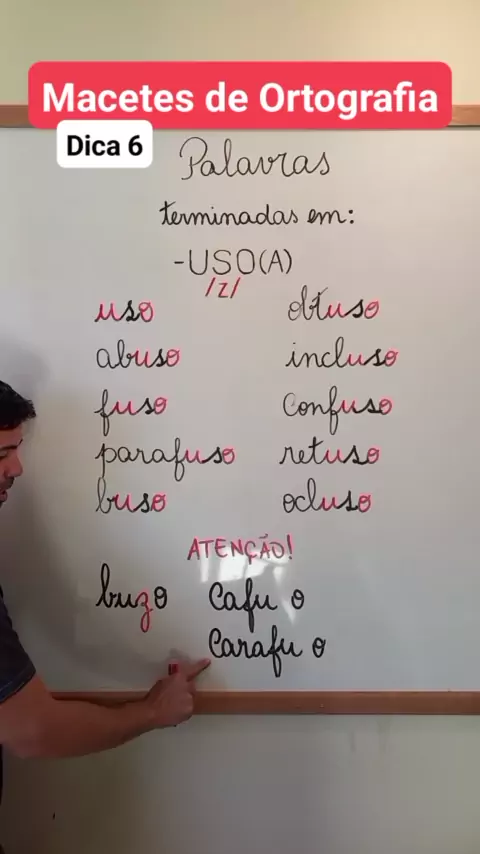 Macetes de Ortografia
Dica 6
Palavras
terminadas em:
-USO(A)
/z/
uso
abuso
fuso
parafuso
buso
obtuso
incluso
confuso
retuso
ocluso
ATENÇÃO!
buzo
Cafu o
Carafu o